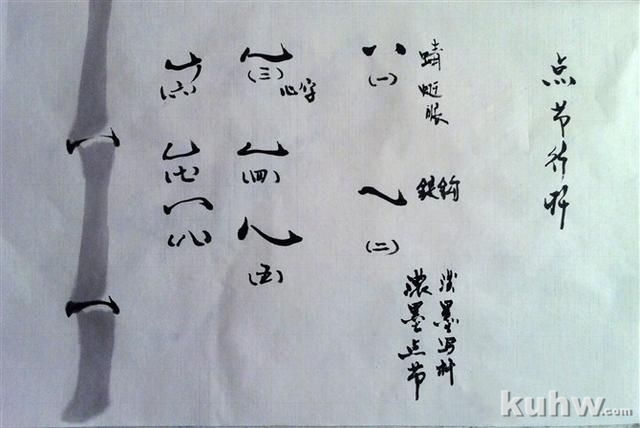 点节竹杆
蜻蜓眼
(一)
(二)
浅墨写杆
浓墨点节
(三)
心字
(四)
(五)
(六)
(七)
(八)
kuhw.com